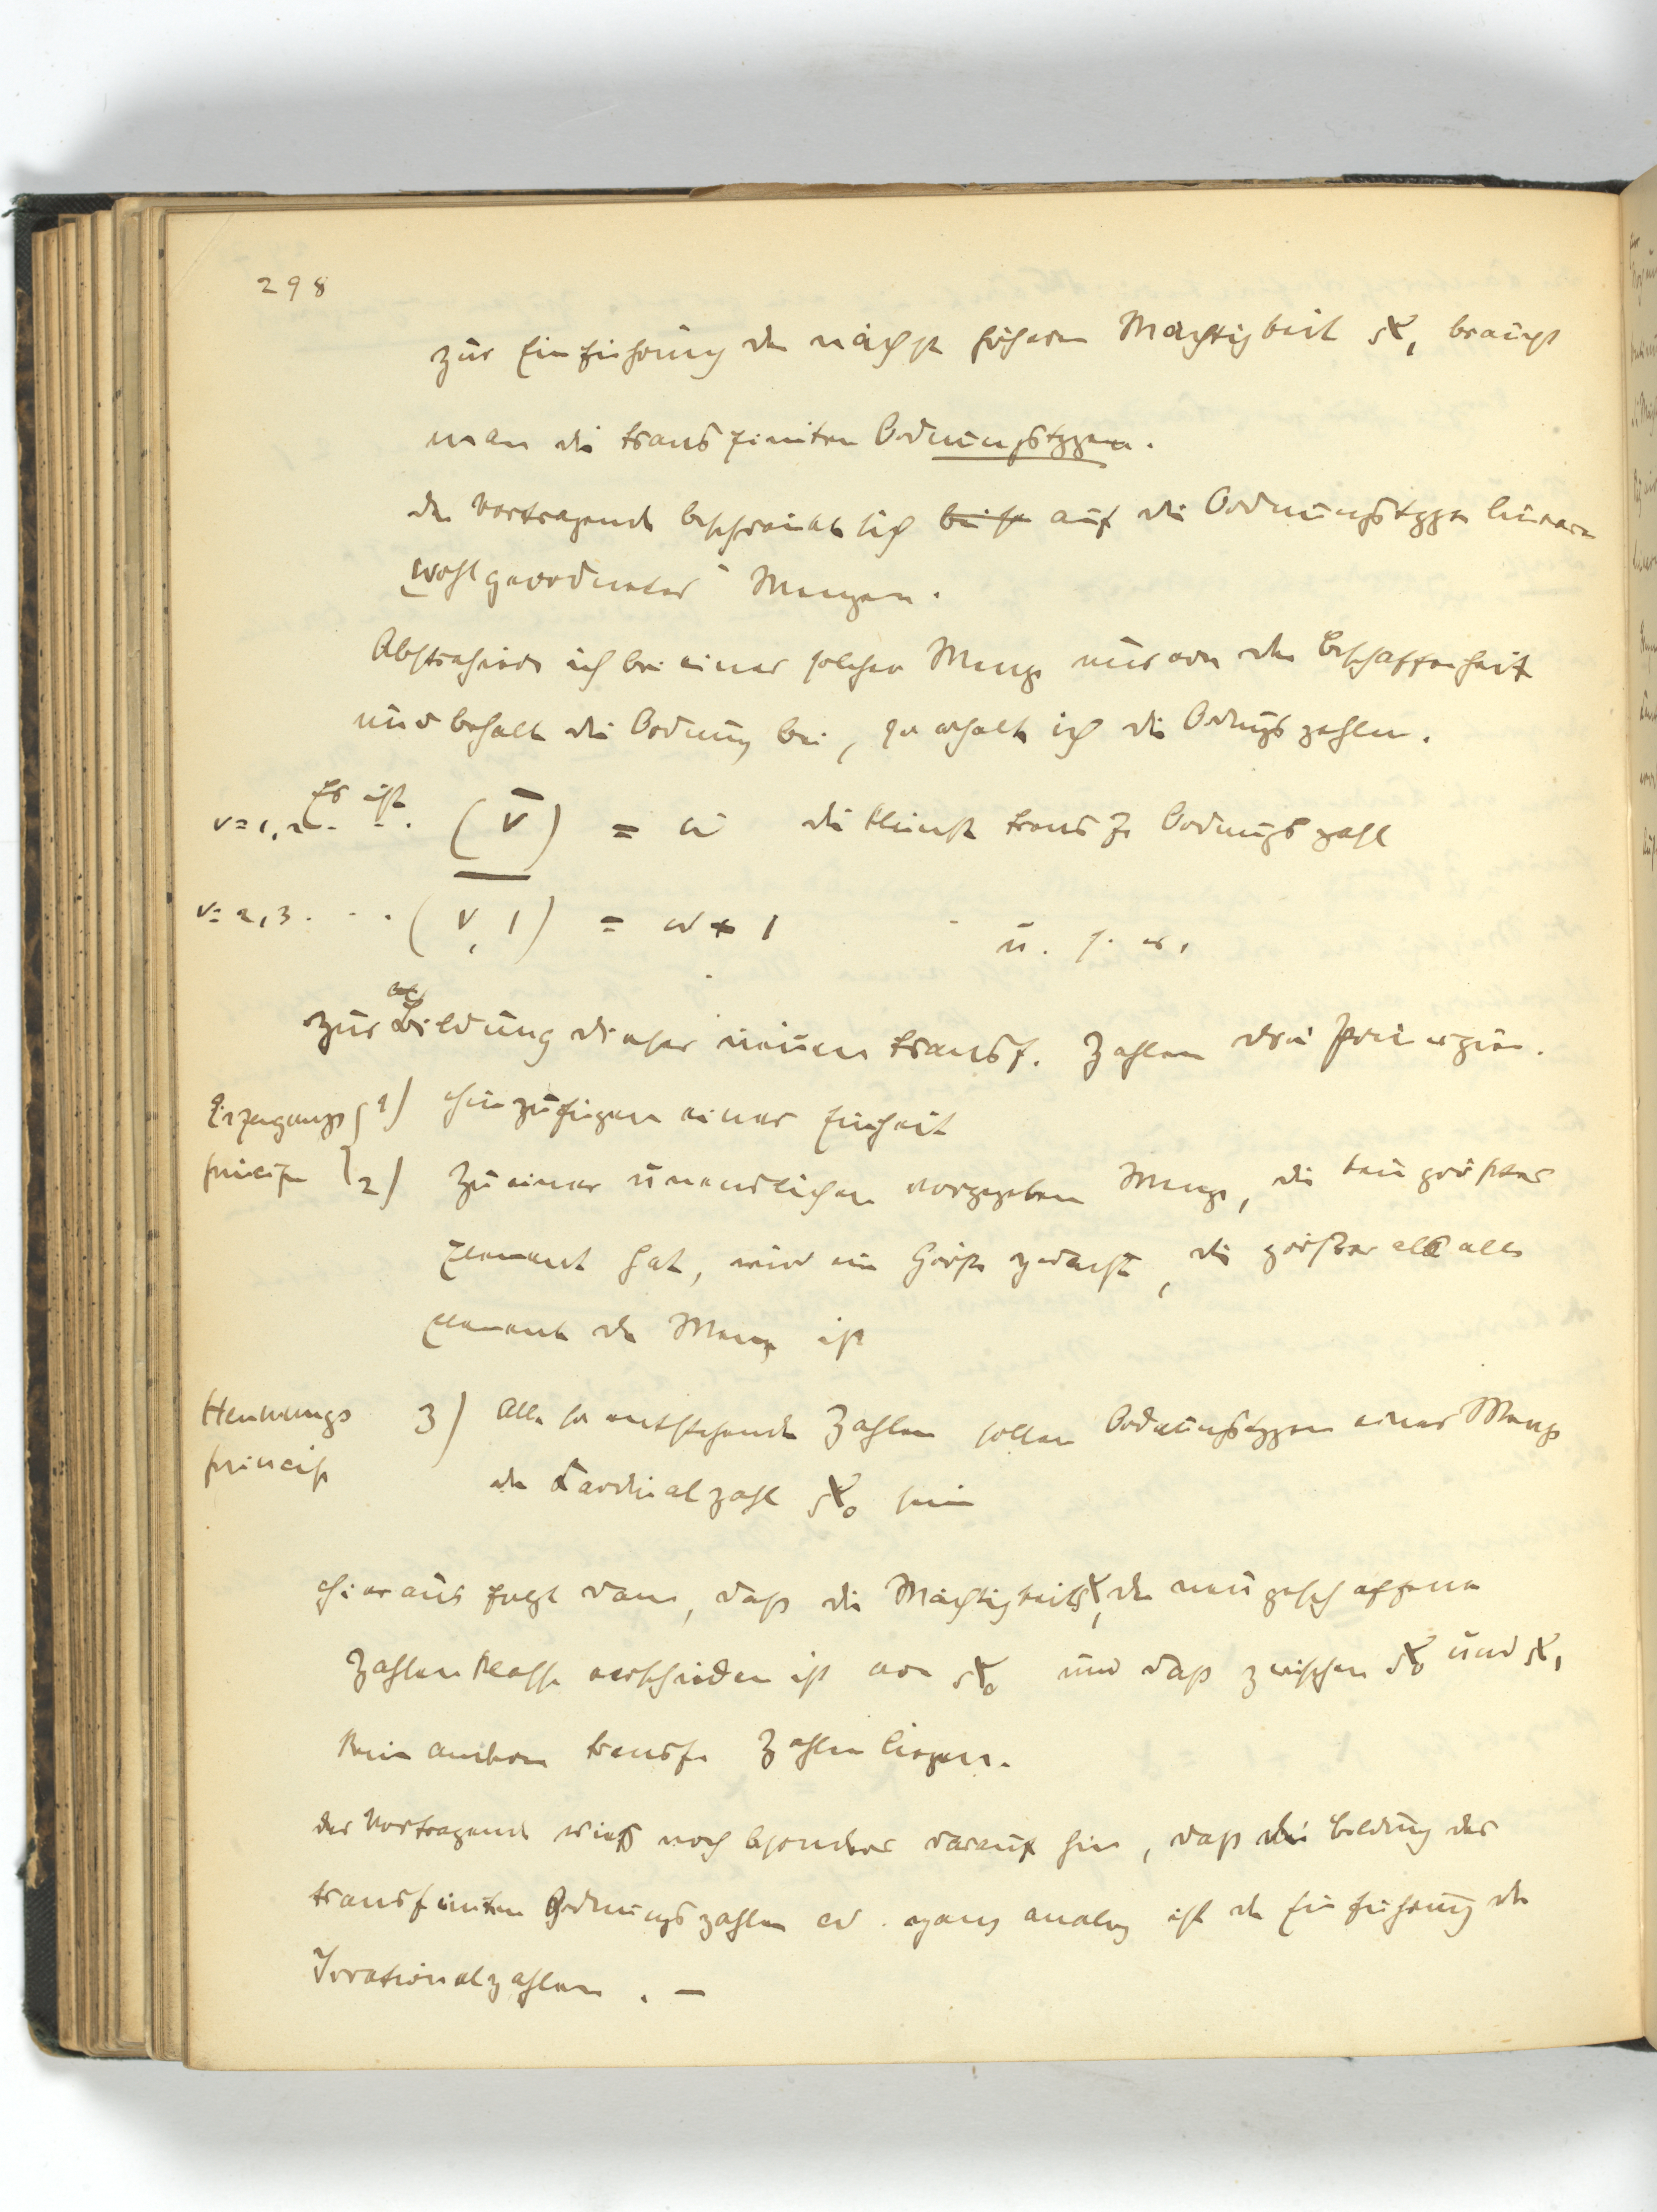 298
zur Einführung der nächst höheren Mächtigkeit ℵ₁ braucht
man die transfiniten Ordnungstypen.
der Vortragende beschränkt sich auf die Ordnungstypen linearer
"wohlgeordneter" Mengen.
Abstrahiere ich bei einer solchen Menge nur von der Beschaffenheit
und behalte die Ordnung bei, so erhalte ich die Ordnungszahlen.
Es ist
ν=1,2 . . . (ν) = ω die kleinste transf. Ordnungszahl
ν=2,3 . . . (ν, 1) = ω + 1 u. s. w.
zur Bildung dieser neuen transf. Zahlen drei Principien.
Erzeugungs 1) Hinzufügen einer Einheit
princip 2) Zu einer unendlichen vorgegeben Menge, die kein größtes
Element hat, wird eine Größe gedacht, die größer als alle
Elemente der Menge ist
Hemmungs 3) Alle so entstehende Zahlen sollen Ordnungstypen einer Menge
princip der Cardinalzahl ℵ₀ sein
Hieraus folgt dann, daß die Mächtigkeit ℵ₁ der neu geschaffenen
Zahlenklasse verschieden ist von ℵ₀ und daß zwischen ℵ₀ und ℵ₁
keine anderen transf. Zahlen liegen.
der Vortragende wieß noch besonders darauf hin, daß die Bildung der
transfiniten Ordnungszahlen ω ganz analog ist der Einführung der
Irrationalzahlen. —